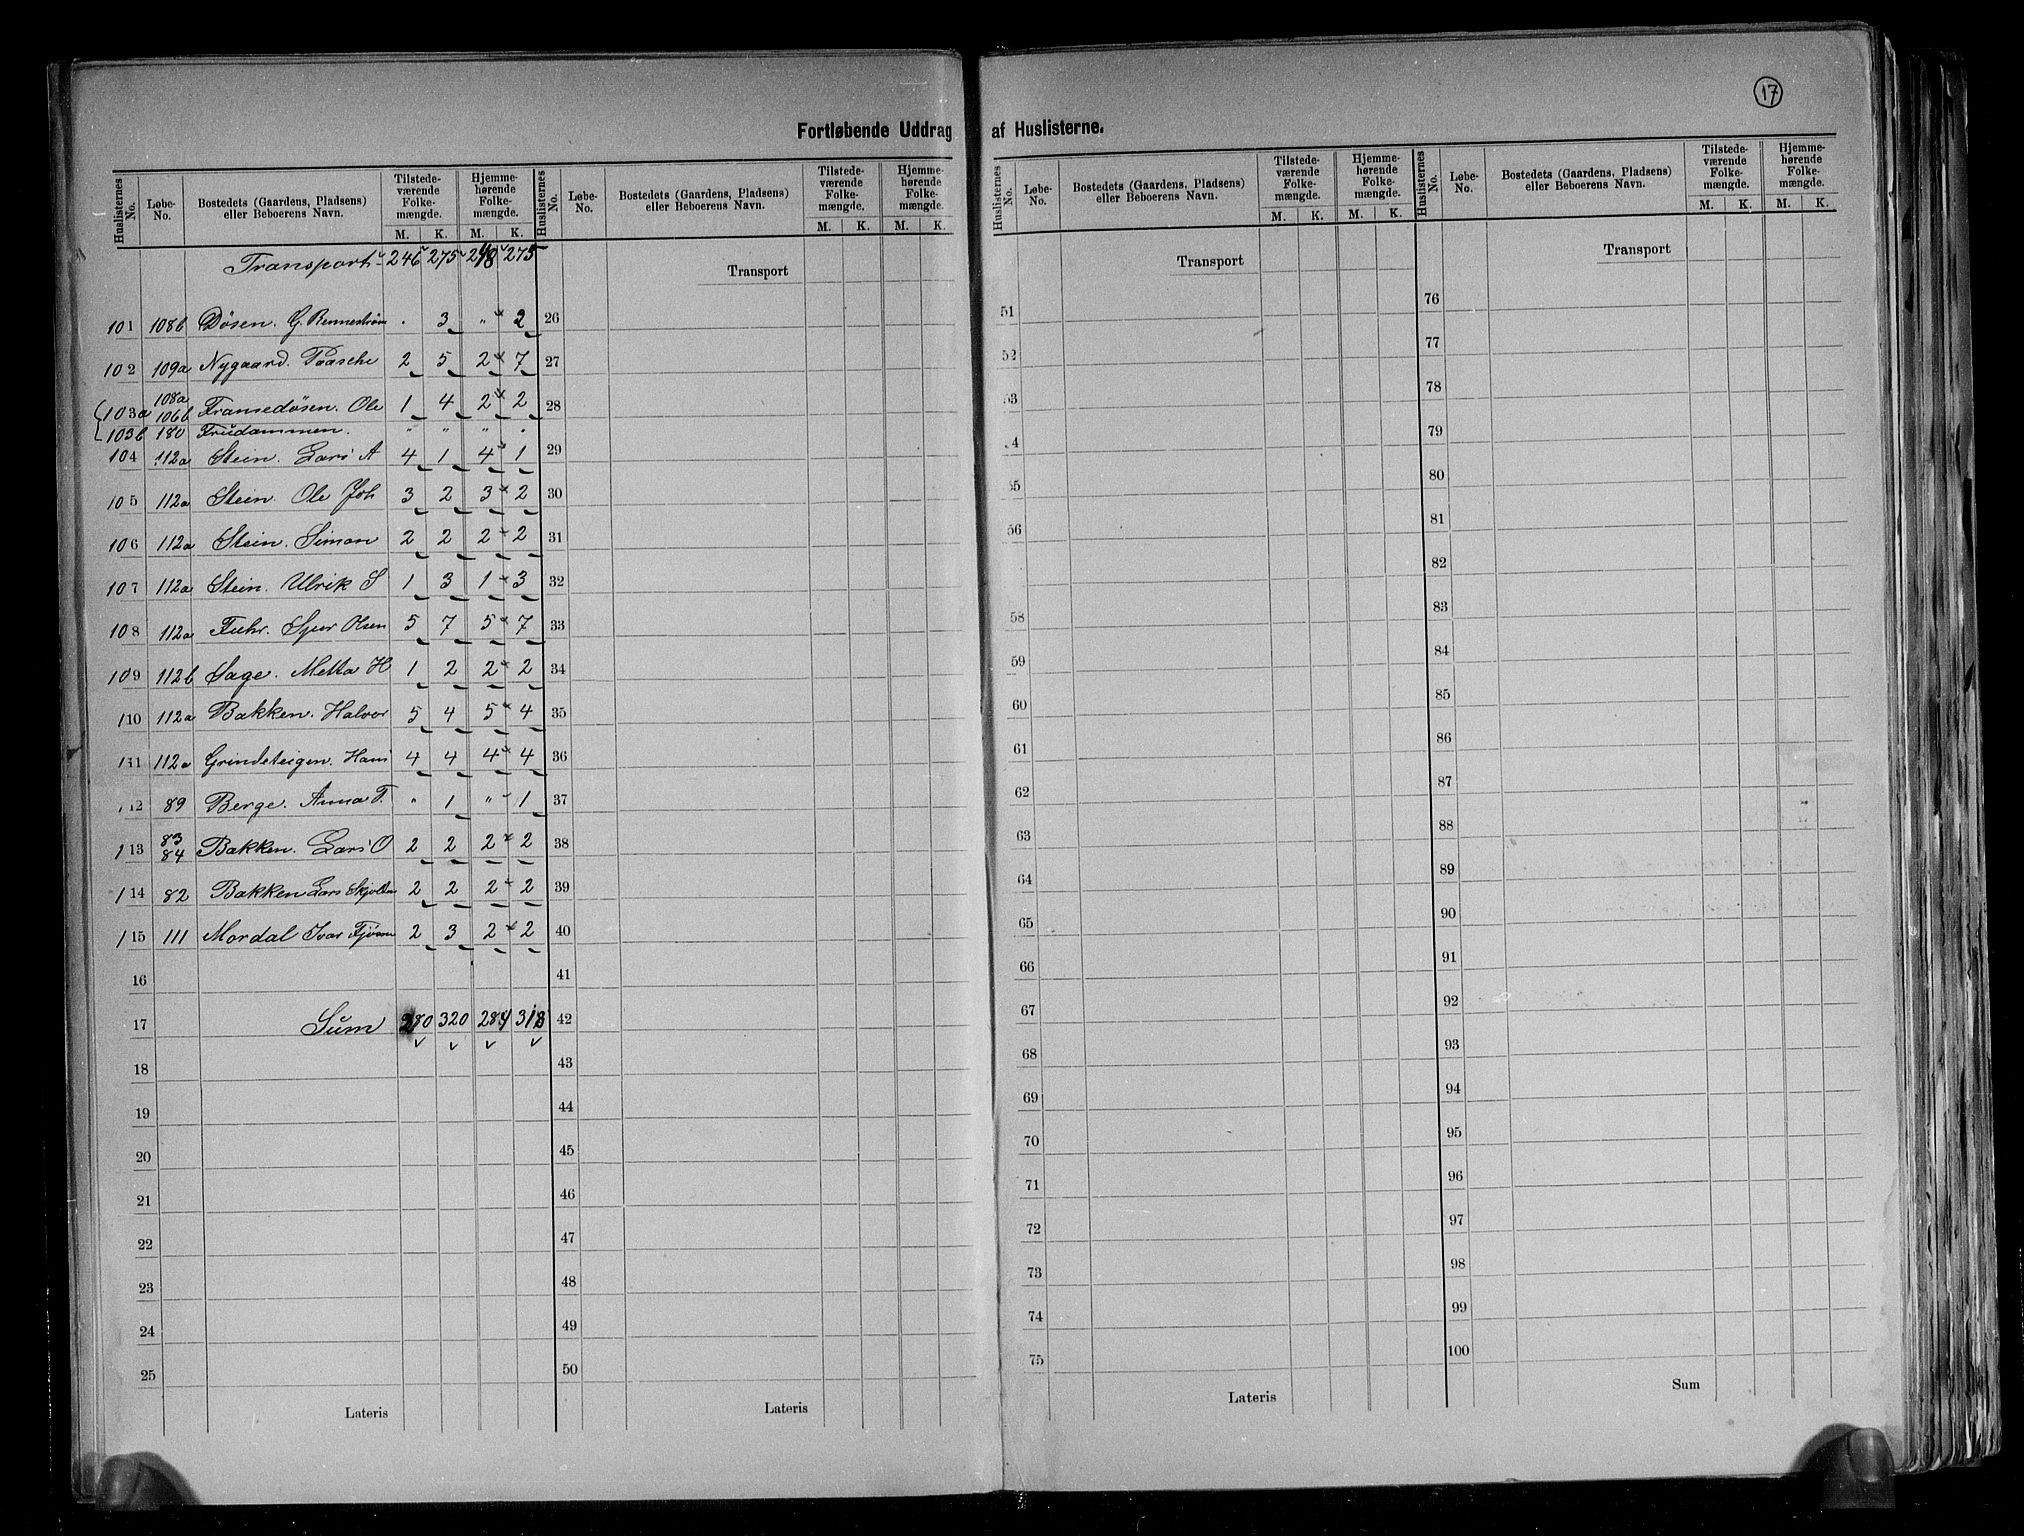 17
Fortløbende Uddrag af Huslisterne.
Huslisternes No. Løbe-No. Bostedets (Gaardens, Pladsens) eller Beboerens Navn. Tilstedeværende Folkemængde. M. K. Hjemmehørende Folkemængde. M. K.
Transport 246 275 248 275
101 108b Døsen. G. Rennestrøm " 3 " 2
102 109a Nygaard. Paasche 2 5 2 7
103a 108a 106b Fransedøsen. Ole 1 4 2 2
103b 180 Frudammen. " " " "
104 112a Stein. Lars A 4 1 4 1
105 112a Stein. Ole Joh 3 2 3 2
106 112a Stein. Simon 2 2 2 2
107 112a Stein. Ulrik S 1 3 1 3
108 112a Fuhr. Sjur Olsen 5 7 5 7
109 112b Sage. Metta H 1 2 2 2
110 112a Bakken. Halvor 5 4 5 4
111 112a Grindeteigen. Hans 4 4 4 4
112 89 Berge. Anna T. " 1 " 1
113 83 84 Bakken. Lars O 2 2 2 2
114 82 Bakken Lars 2 2 2 2
115 111 Mordal Ivar 2 3 2 2
16
17 Sum 280 320 284 318
18
19
20
21
22
23
24
25
Lateris
Huslisternes No. Løbe-No. Bostedets (Gaardens, Pladsens) eller Beboerens Navn. Tilstedeværende Folkemængde. M. K. Hjemmehørende Folkemængde. M. K.
Transport
26
27
28
29
30
31
32
33
34
35
36
37
38
39
40
41
42
43
44
45
46
47
48
49
50
Lateris
Huslisternes No. Løbe-No. Bostedets (Gaardens, Pladsens) eller Beboerens Navn. Tilstedeværende Folkemængde. M. K. Hjemmehørende Folkemængde. M. K.
Transport
51
52
53
54
55
56
58
59
60
61
62
63
64
65
66
67
68
69
70
71
72
73
74
75
Lateris
Huslisternes No. Løbe-No. Bostedets (Gaardens, Pladsens) eller Beboerens Navn. Tilstedeværende Folkemængde. M. K. Hjemmehørende Folkemængde. M. K.
Transport
76
77
78
79
80
81
82
83
84
85
86
87
88
89
90
91
92
93
94
95
96
97
98
99
100
Sum